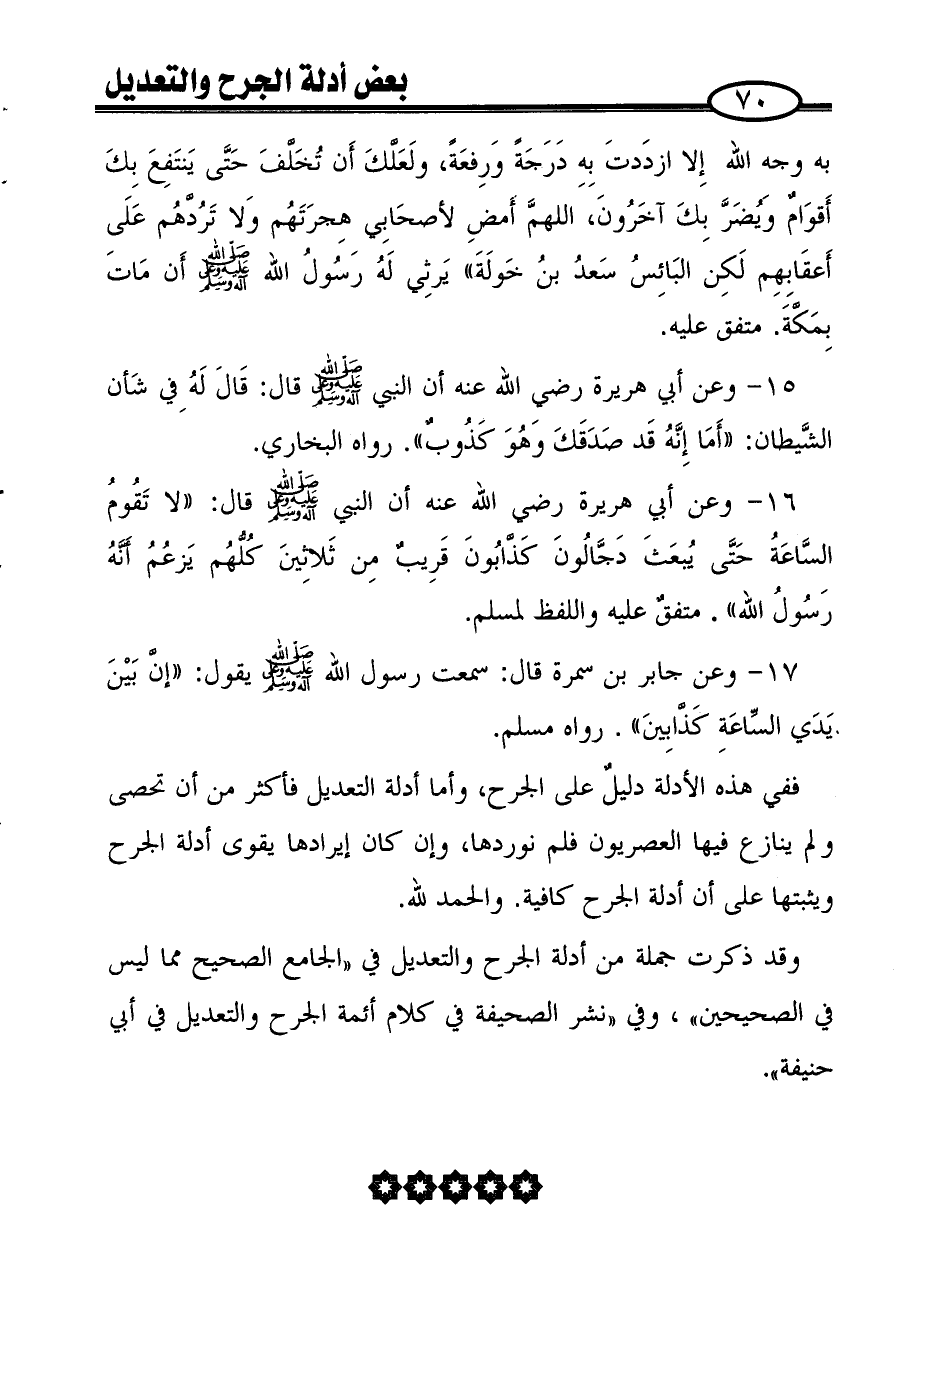 بعض أدلة الجرح والتعديل
٧٠
به وجه الله إلا ازدَدتَ بِهِ دَرَجَةً وَرِفعَةً، ولَعَلَّكَ أَن تُخَلَّفَ حَتَّى يَنتَفِعَ بِكَ
أَقوَامٌ وَيُضَرَّ بِكَ آخَرُونَ، اللهمَّ أَمضِ لأصحَابي هِجرَتَهُم وَلا تَرُدَّهُم عَلَى
أَعقَابِهِم لَكِن البَائِسُ سَعدُ بنُ خَولَةَ» يَرثِي لَهُ رَسُولُ الله ﷺ أَن مَاتَ
بِمَكَّةَ. متفق عليه.
١٥- وعن أبي هريرة رضي الله عنه أن النبي ﷺ قال: قَالَ لَهُ فِي شَأن
الشَّيطان: «أَمَا إِنَّهُ قَد صَدَقَكَ وَهُوَ كَذُوبٌ». رواه البخاري.
١٦- وعن أبي هريرة رضي الله عنه أن النبي ﷺ قال: «لا تَقُومُ
السَّاعَةُ حَتَّى يُبعَثَ دَجَّالُونَ كَذَّابُونَ قَرِيبٌ مِن ثَلاثِينَ كُلُّهُم يَزعُمُ أَنَّهُ
رَسُولُ الله» . متفقٌ عليه واللفظ لمسلم.
١٧- وعن جابر بن سمرة قال: سمعت رسول الله ﷺ يقول: «إنَّ بَيْنَ
يَدَي السَّاعَةِ كَذَّابِينَ» . رواه مسلم.
ففي هذه الأدلة دليلٌ على الجرح، وأما أدلة التعديل فأكثر من أن تحصى
ولم ينازع فيها العصريون فلم نوردها، وإن كان إيرادها يقوى أدلة الجرح
ويثبتها على أن أدلة الجرح كافية. والحمد لله.
وقد ذكرت جملة من أدلة الجرح والتعديل في «الجامع الصحيح مما ليس
في الصحيحين» ، وفي «نشر الصحيفة في كلام أئمة الجرح والتعديل في أبي
حنيفة».